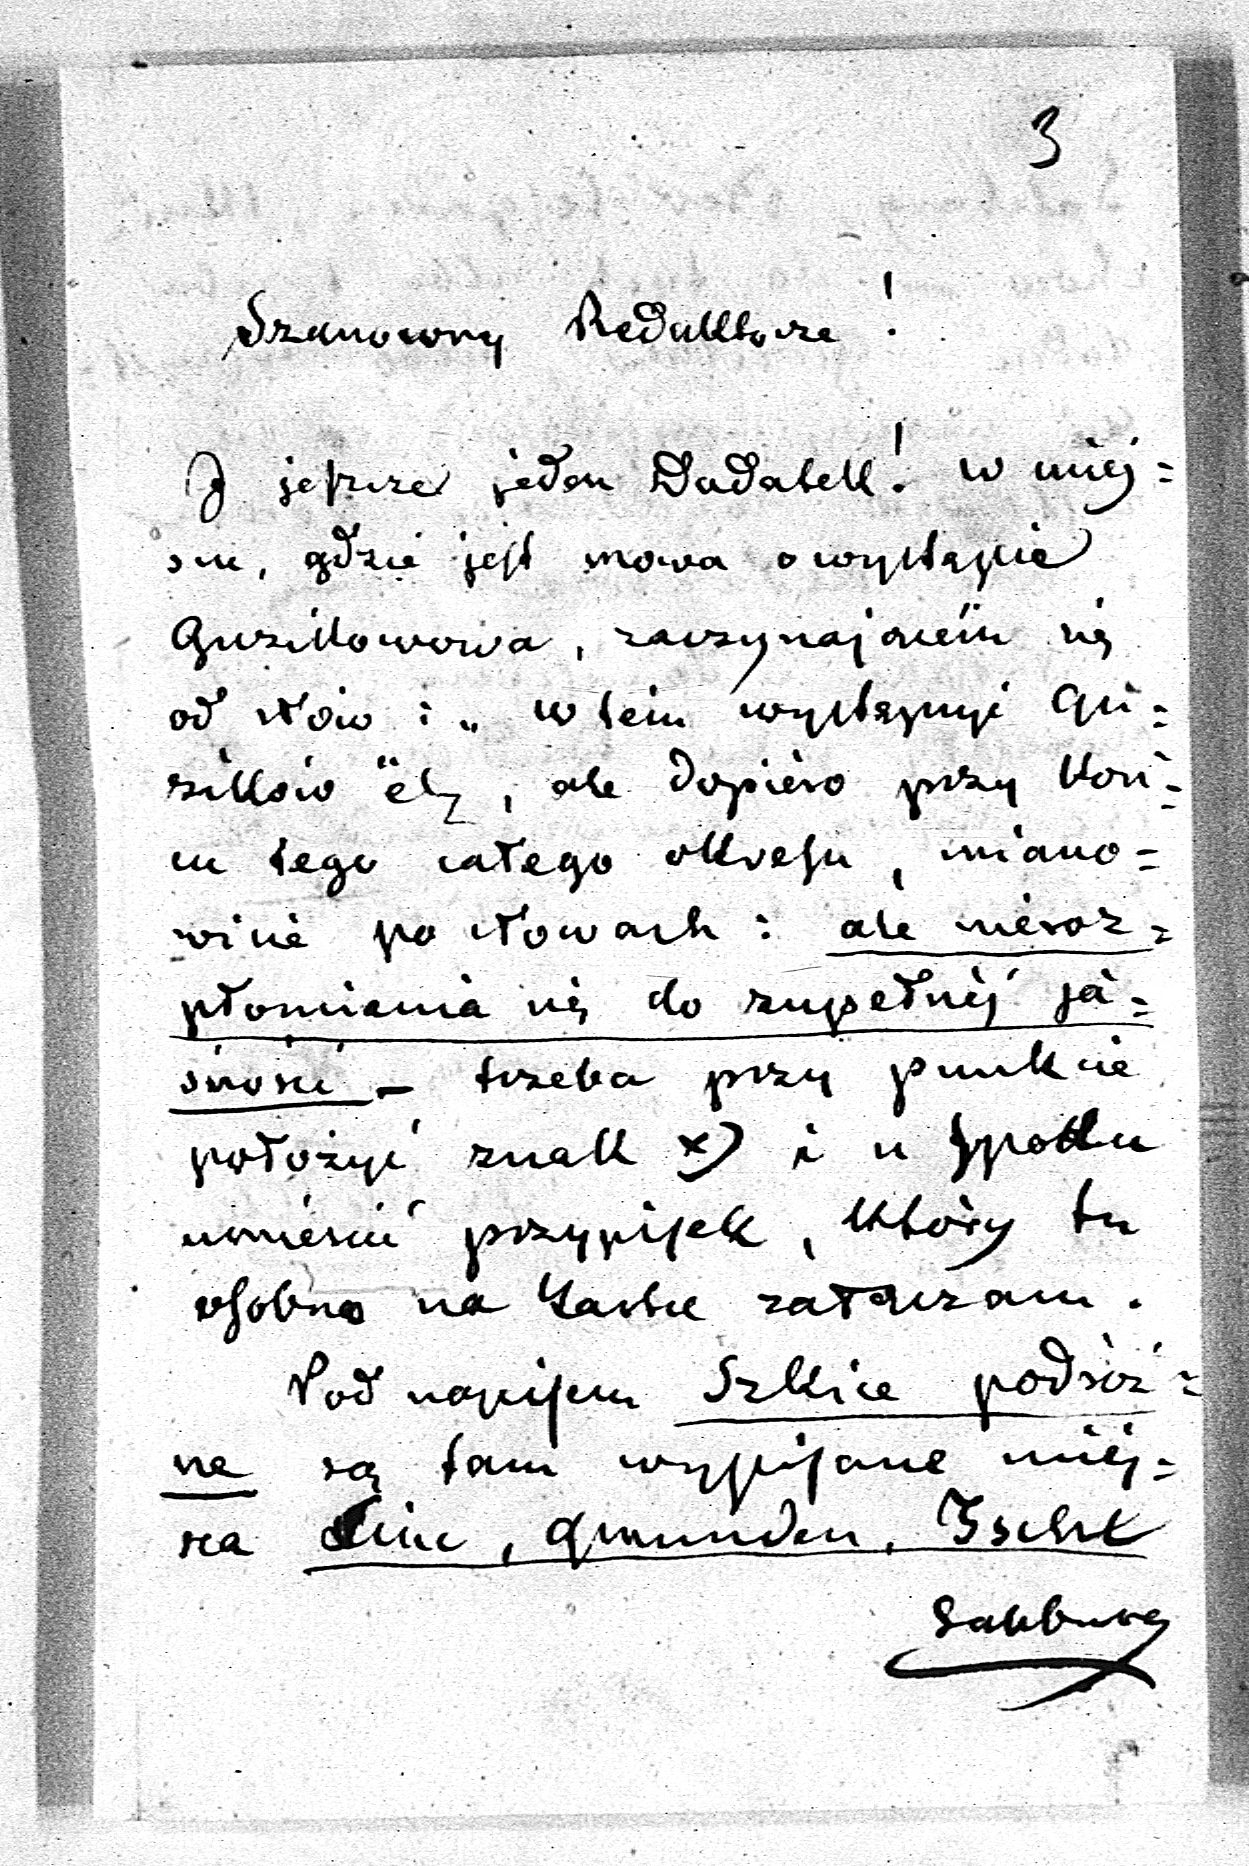 3
Szanowny Redaktorze!
I jeszcze jeden Dodatek! w miej=
scu, gdzie jest mowa o występie
Guzikowowa, zaczynającém się
od słów: „w tém występuje Gu=
zików" etc, ale dopiero przy koń=
cu tego całego okresu, miano=
wicie po słowach: ale nieroz=
płomienia się do zupełnéj ja=
śności – trzeba przy punkcie
położyć znak x) i u spodu
umieścić przypisek, który tu
osobno na kartce załączam.
Pod napisem Szkice podróż=
ne są tam wypisane miej=
sca Linc, Gmunden, Ischl
Salzburg